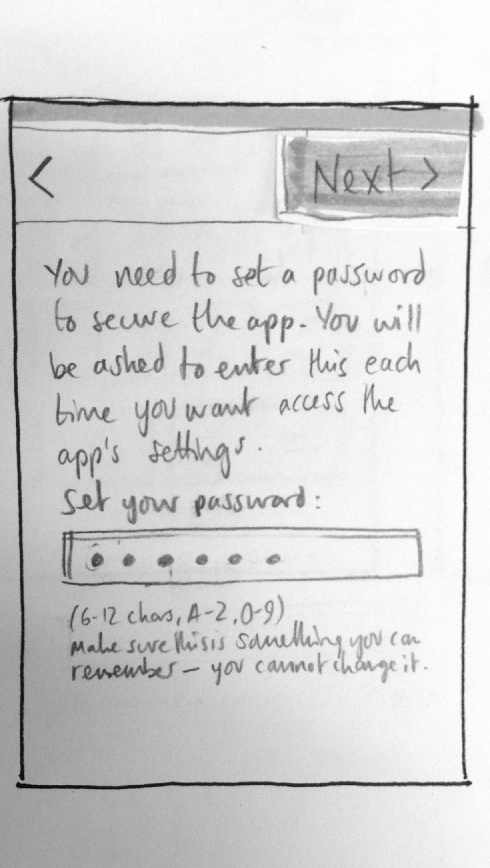 < Next >
You need to set a password
to secure the app. You will
be asked to enter this each
time you want access the
app's settings.
Set your password:
(6-12 chars, A-Z, 0-9)
Make sure this is something you can
remember – you cannot change it.